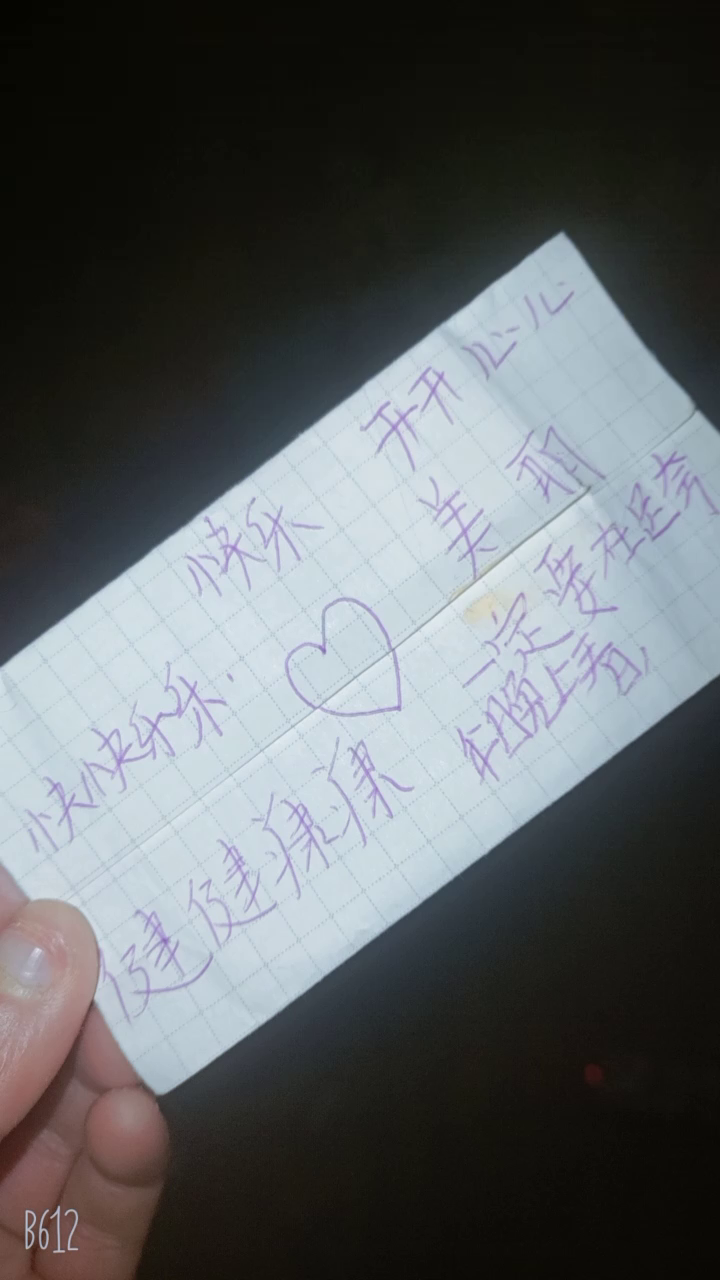 开开心心
快乐 美丽
快快乐乐.
一定要在跨
年晚上看,
健健康康
B612